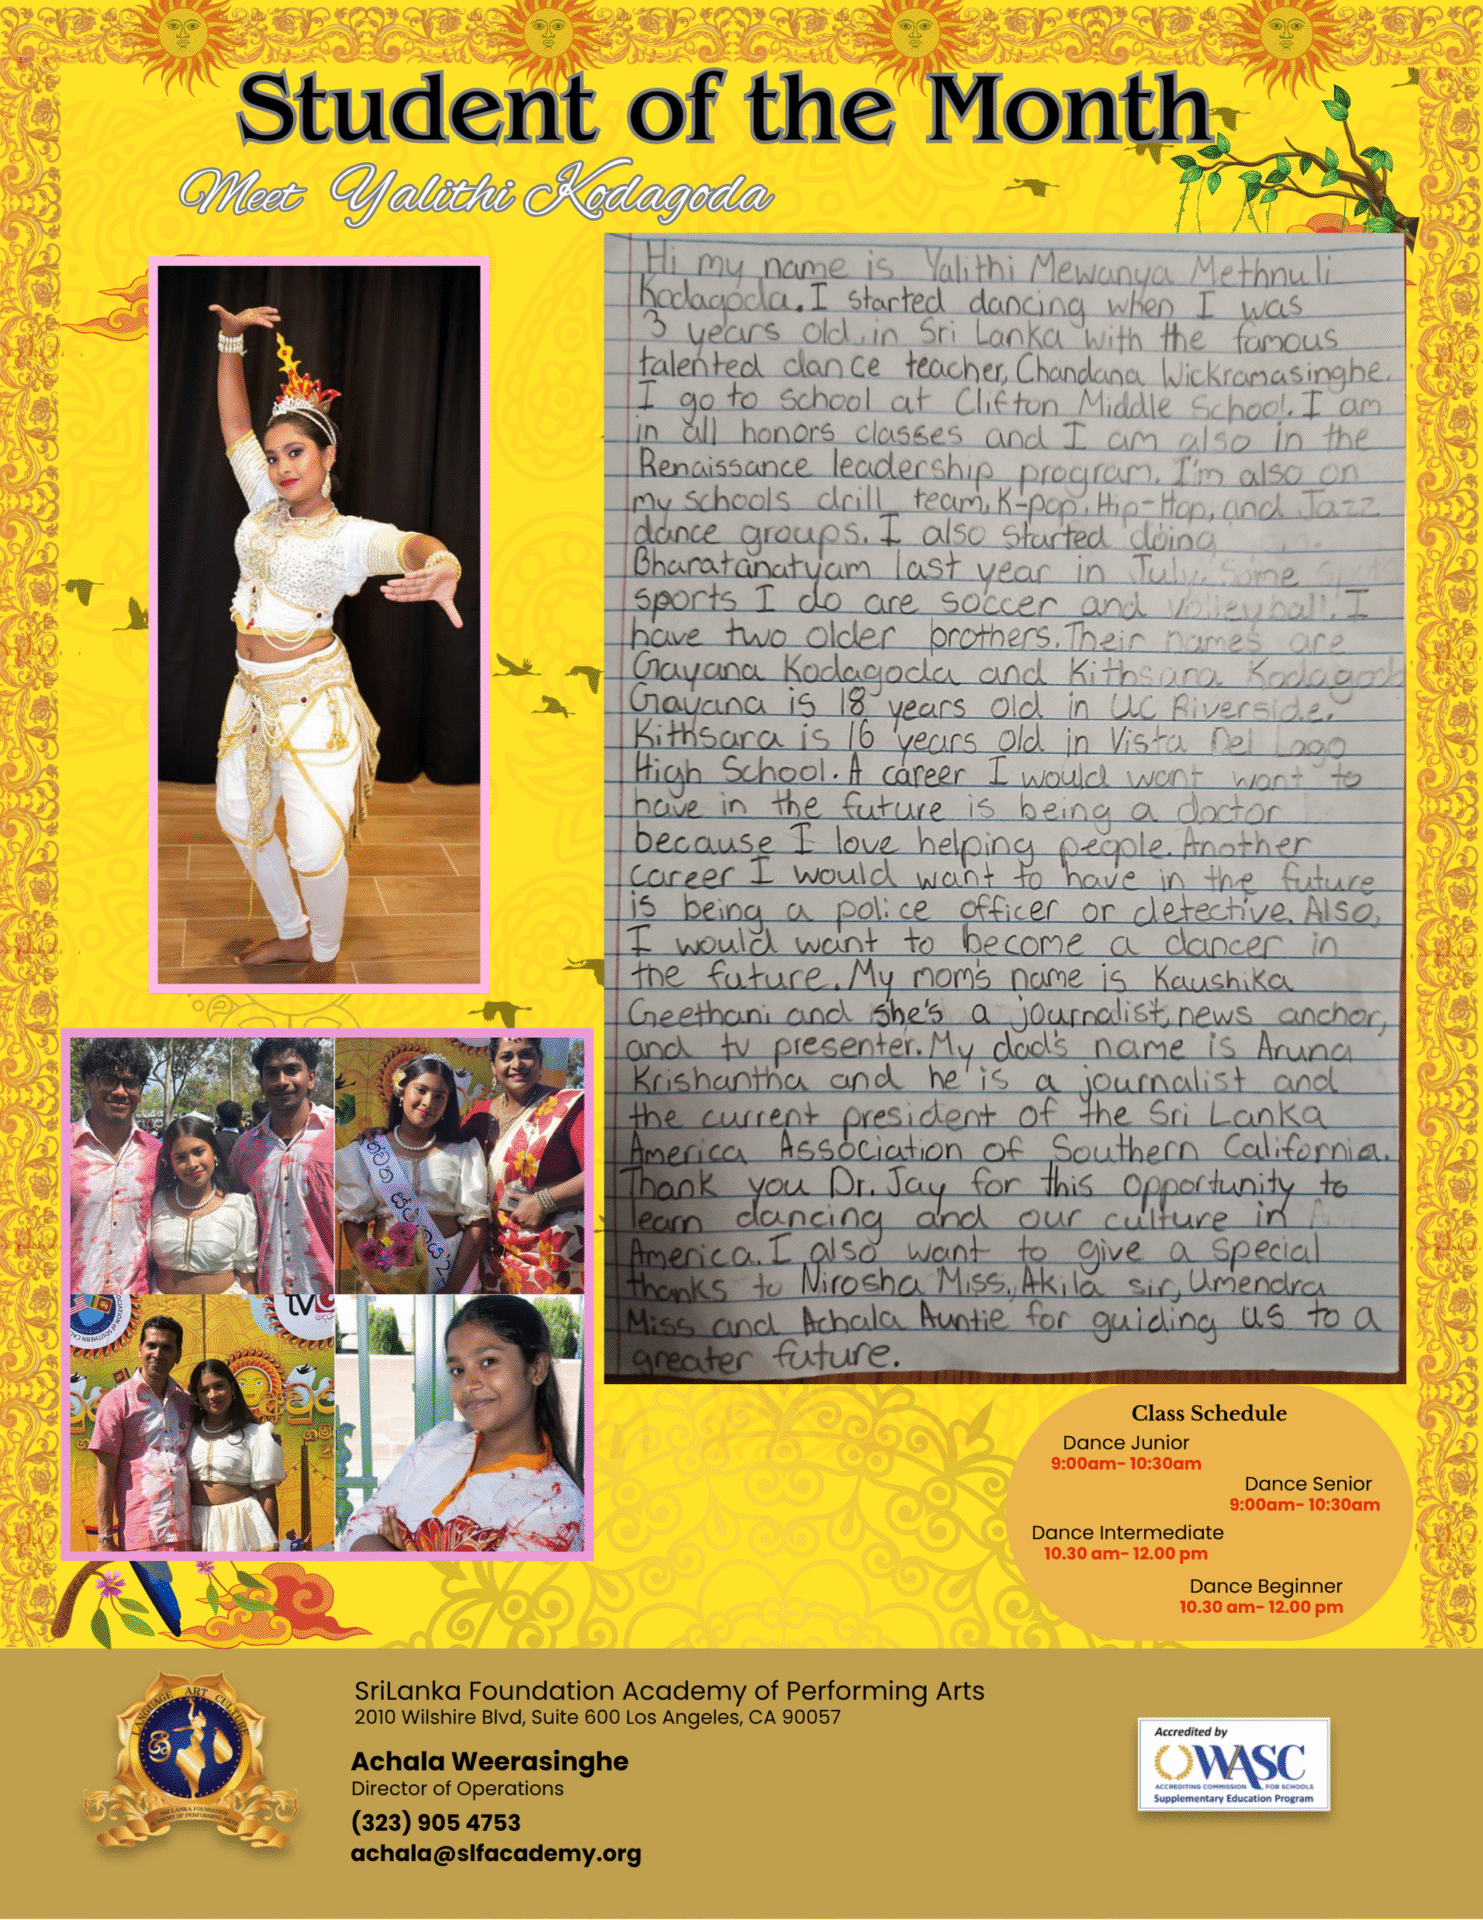 Student of the Month
Meet Yalithi Kodagoda
Hi my name is Yalithi Mewanya Methnuli
Kodagoda. I started dancing when I was
3 years old, in Sri Lanka with the famous
talented dance teacher, Chandana Wickramasinghe.
I go to school at Clifton Middle School. I am
in all honors classes and I am also in the
Renaissance leadership program. I'm also on
my schools drill team, K-pop, Hip-Hop, and Jazz
dance groups. I also started doing
Bharatanatyam last year in July. Some
sports I do are soccer and volleyball. I
have two older brothers. Their names are
Gayana Kodagoda and Kithsara Kodagoda
Gayana is 18 years old in UC Riverside.
Kithsara is 16 years old in Vista Del Lago
High School. A career I would want want to
have in the future is being a doctor
because I love helping people. Another
career I would want to have in the future
is being a police officer or detective. Also,
I would want to become a dancer in
the future. My mom's name is Kaushika
Geethani and she's a journalist, news anchor,
and tv presenter. My dad's name is Aruna
Krishantha and he is a journalist and
the current president of the Sri Lanka
America Association of Southern California.
Thank you Dr. Jay for this opportunity to
learn dancing and our culture in
America. I also want to give a special
thanks to Nirosha Miss, Akila sir, Umendra
Miss and Achala Auntie for guiding us to a
greater future.
Class Schedule
Dance Junior
9:00am- 10:30am
Dance Senior
9:00am- 10:30am
Dance Intermediate
10.30 am- 12.00 pm
Dance Beginner
10.30 am- 12.00 pm
LANGUAGE ART CULTURE
SRI LANKA FOUNDATION
ACADEMY OF PERFORMING ARTS
SriLanka Foundation Academy of Performing Arts
2010 Wilshire Blvd, Suite 600 Los Angeles, CA 90057
Achala Weerasinghe
Director of Operations
(323) 905 4753
achala@slfacademy.org
Accredited by
WASC
ACCREDITING COMMISSION FOR SCHOOLS
Supplementary Education Program